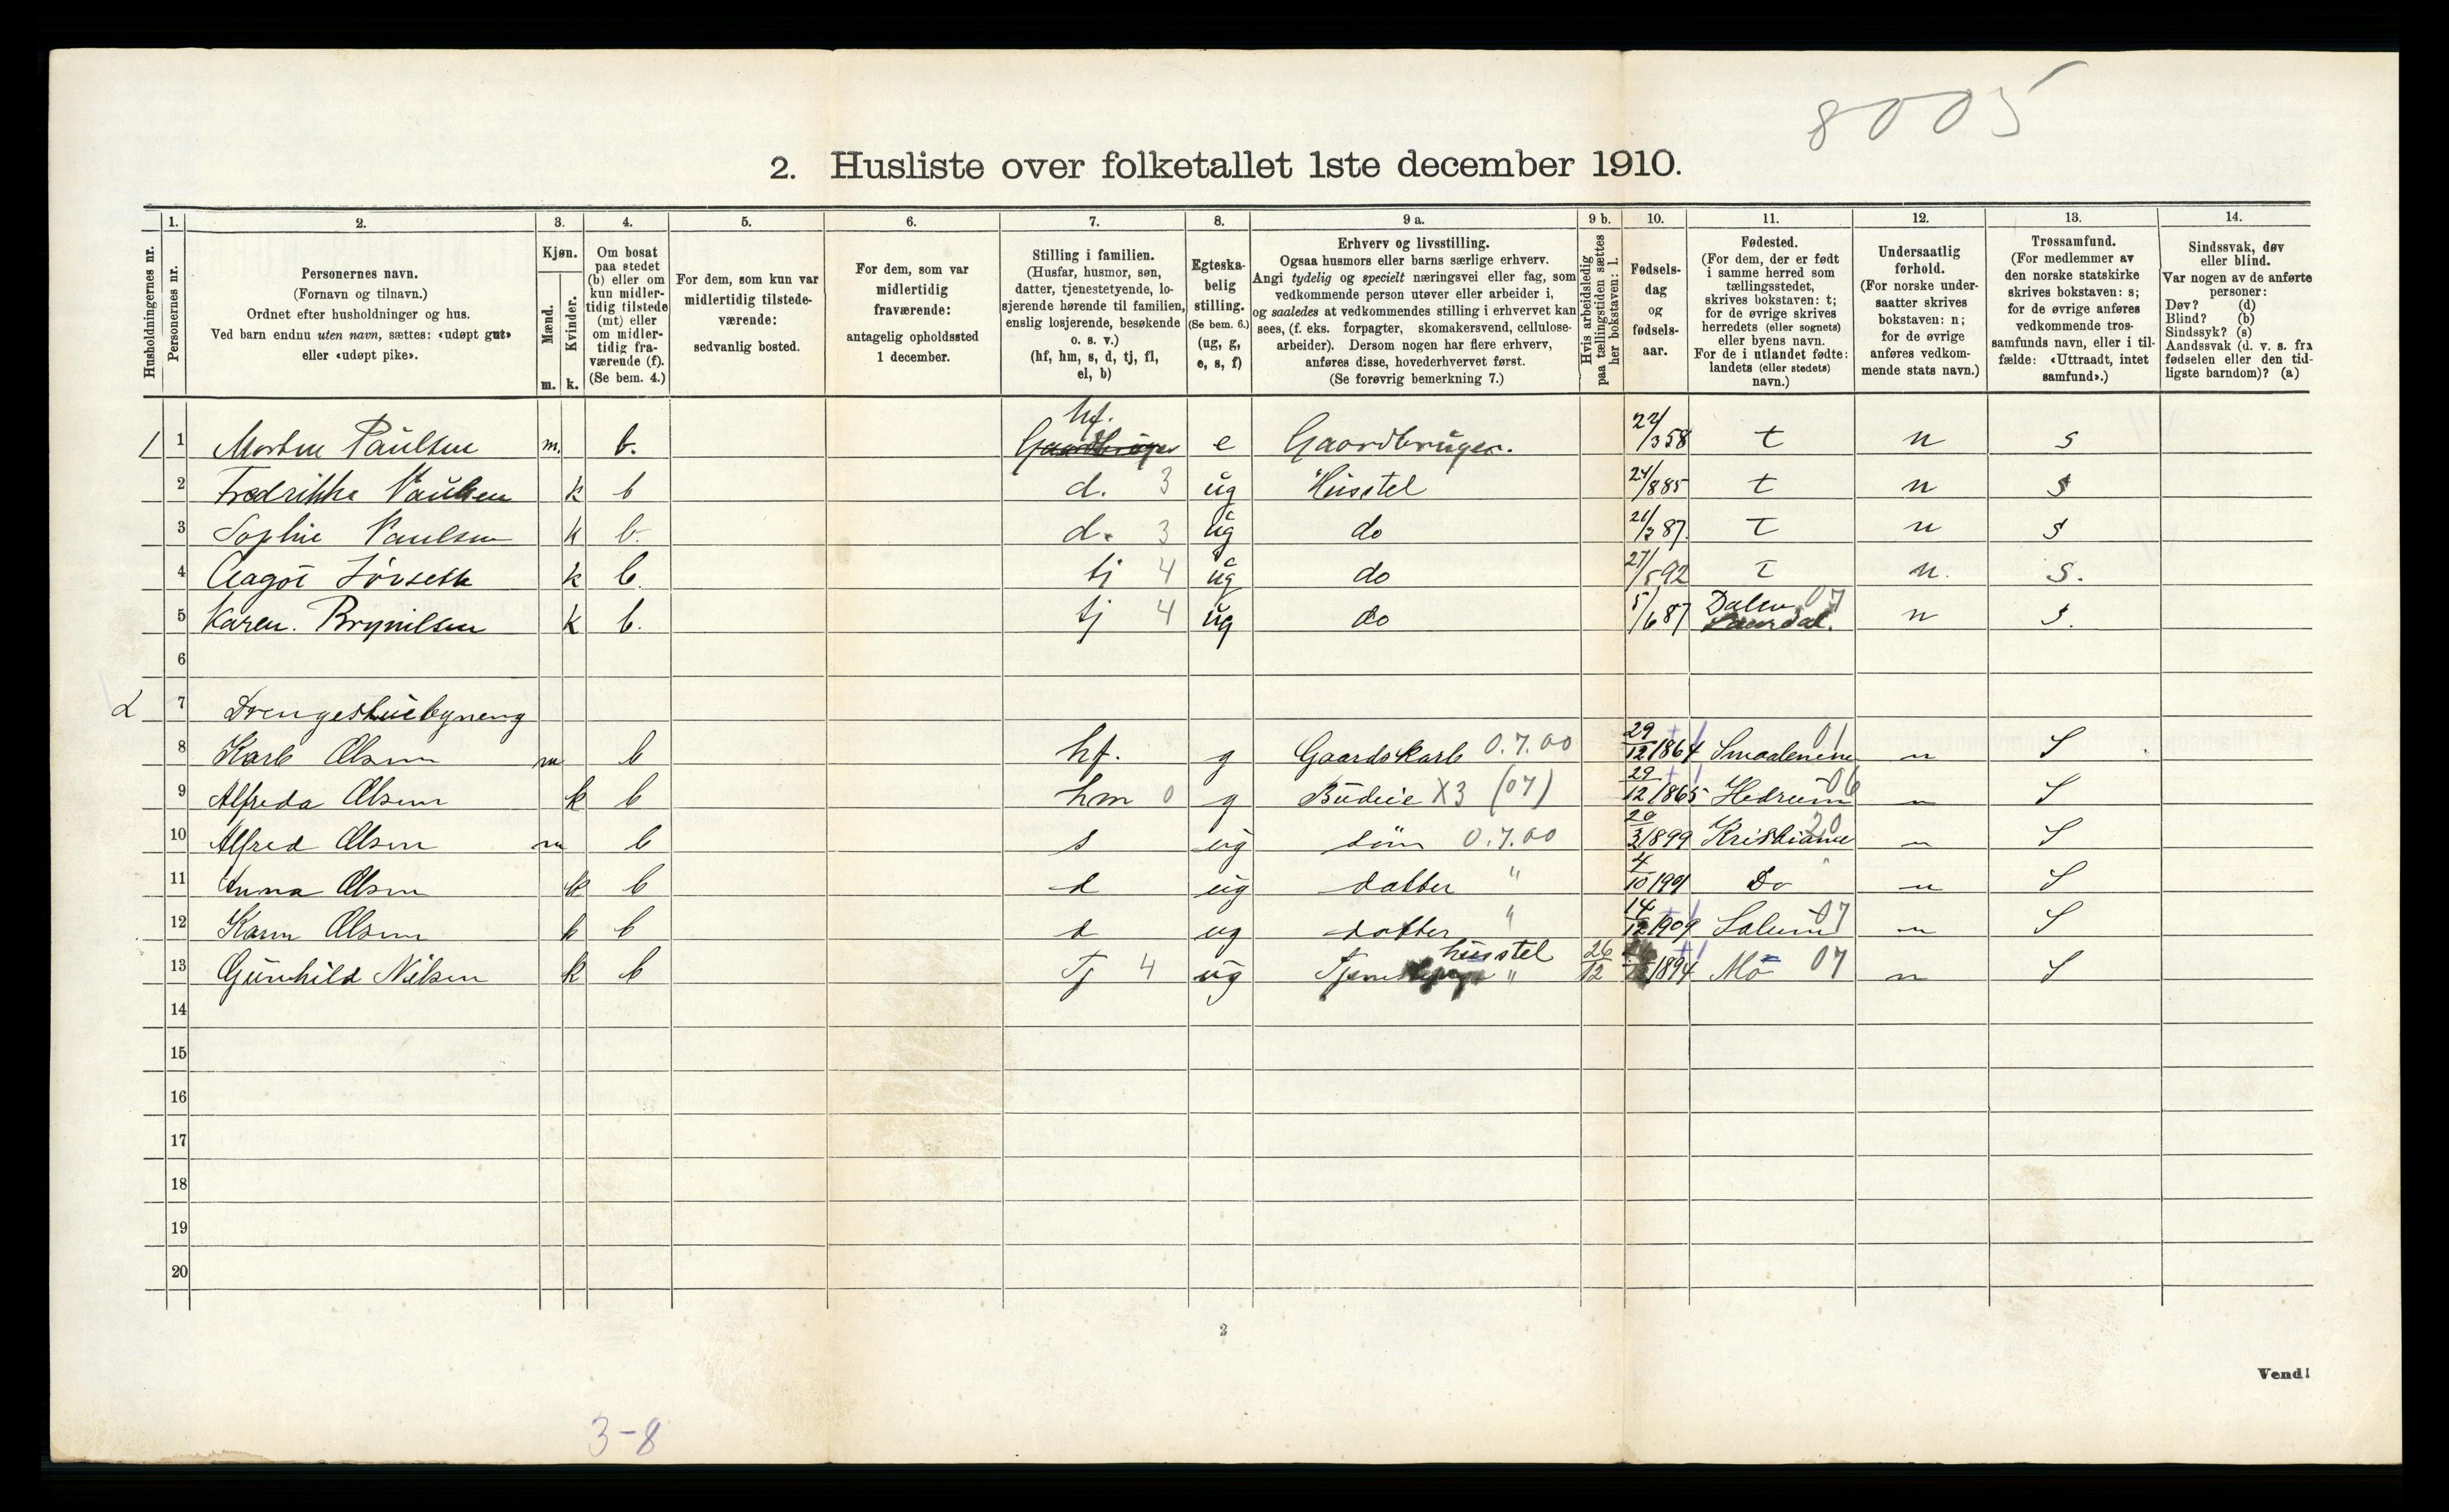 8005
2. Husliste over folketallet 1ste december 1910.
Husholdningernes nr.
1. Personernes nr.
2. Personernes navn.
(Fornavn og tilnavn.)
Ordnet efter husholdninger og hus.
Ved barn endnu uten navn, sættes: «udøpt gut»
eller «udøpt pike».
3. Kjøn.
Mænd. m.
Kvinder. k.
4. Om bosat
paa stedet
(b) eller om
kun midler-
tidig tilstede
(mt) eller
om midler-
tidig fra-
værende (f).
(Se bem. 4.)
5. For dem, som kun var
midlertidig tilstede-
værende:
sedvanlig bosted.
6. For dem, som var
midlertidig
fraværende:
antagelig opholdssted
1 december.
7. Stilling i familien.
(Husfar, husmor, søn,
datter, tjenestetyende, lo-
sjerende hørende til familien,
enslig losjerende, besøkende
o. s. v.)
(hf, hm, s, d, tj, fl,
el, b)
8. Egteska-
belig
stilling.
(Se bem. 6.)
(ug, g,
e, s, f)
9 a. Erhverv og livsstilling.
Ogsaa husmors eller barns særlige erhverv.
Angi tydelig og specielt næringsvei eller fag, som
vedkommende person utøver eller arbeider i,
og saaledes at vedkommendes stilling i erhvervet kan
sees, (f. eks. forpagter, skomakersvend, cellulose-
arbeider). Dersom nogen har flere erhverv,
anføres disse, hovederhvervet først.
(Se forøvrig bemerkning 7.)
9 b. Hvis arbeidsledig
paa tællingstiden sættes
her bokstaven: l.
10. Fødsels-
dag
og
fødsels-
aar.
11. Fødested.
(For dem, der er født
i samme herred som
tællingsstedet,
skrives bokstaven: t;
for de øvrige skrives
herredets (eller sognets)
eller byens navn.
For de i utlandet fødte:
landets (eller stedets)
navn.)
12. Undersaatlig
forhold.
(For norske under-
saatter skrives
bokstaven: n;
for de øvrige
anføres vedkom-
mende stats navn.)
13. Trossamfund.
(For medlemmer av
den norske statskirke
skrives bokstaven: s;
for de øvrige anføres
vedkommende tros-
samfunds navn, eller i til-
fælde: «Uttraadt, intet
samfund».)
14. Sindssvak, døv
eller blind.
Var nogen av de anførte
personer:
Døv? (d)
Blind? (b)
Sindssyk? (s)
Aandssvak (d. v. s. fra
fødselen eller den tid-
ligste barndom)? (a)
1 1 Morten Paulsen m. b. hf. Gaardbruger e Gaardbruger. 22/3 58 t n s
2 Fredrikke Paulsen k b d. 3 ug Husstel 24/8 85 t n s
3 Sophie Paulsen k b. d. 3 ug do 21/3 87. t n s
4 Aagot k b. tj 4 ug do 27/5 92 t n. s.
5 Karen. Brynilsen k b. tj 4 ug do 5/6 87 Dalen 07 n s.
6
2 7 Drengestuebygneng
8 Karl Olsen m b hf. g Gaardskarl 0.7.00 29/12 1864 Smaalenene 01 n S
9 Alfreda Olsen k b hm 0 g Budeie X3 (07) 29/12 1865 Hedrum 06 n S
10 Alfred Olsen m b s ug søn 0.7.00 20/3 1899 Kristiania 20 n S
11 Anna Olsen k b d ug datter " 4/10 1901 Do " n S
12 Karen Olsen k b d ug datter " 14/12 1909 Solum 07 n S
13 Gunhild Nilsen k b Tj 4 ug husstel " 26/12 1894 Mo 07 n S
14
15
16
17
18
19
20
2
Vend!
3-8